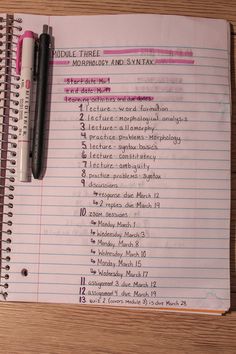 MODULE THREE
MORPHOLOGY AND SYNTAX
start date: Mar 1
end date: Mar 19
learning activities and due dates
1 lecture - word formation
2 lecture - morphological analysis
3 lecture - allomorphy
4 practice problems - morphology
5 lecture - syntax basics
6 lecture - constituency
7 lecture - ambiguity
8 practice problems - syntax
9 discussions
↳ response due March 12
↳ 2 replies due March 19
10 zoom sessions
↳ Monday March 1
↳ Wednesday March 3
↳ Monday March 8
↳ Wednesday March 10
↳ Monday March 15
↳ Wednesday March 17
11 assignment 3 due March 12
12 assignment 4 due March 19
13 quiz 2 (covers module 3) is due March 28